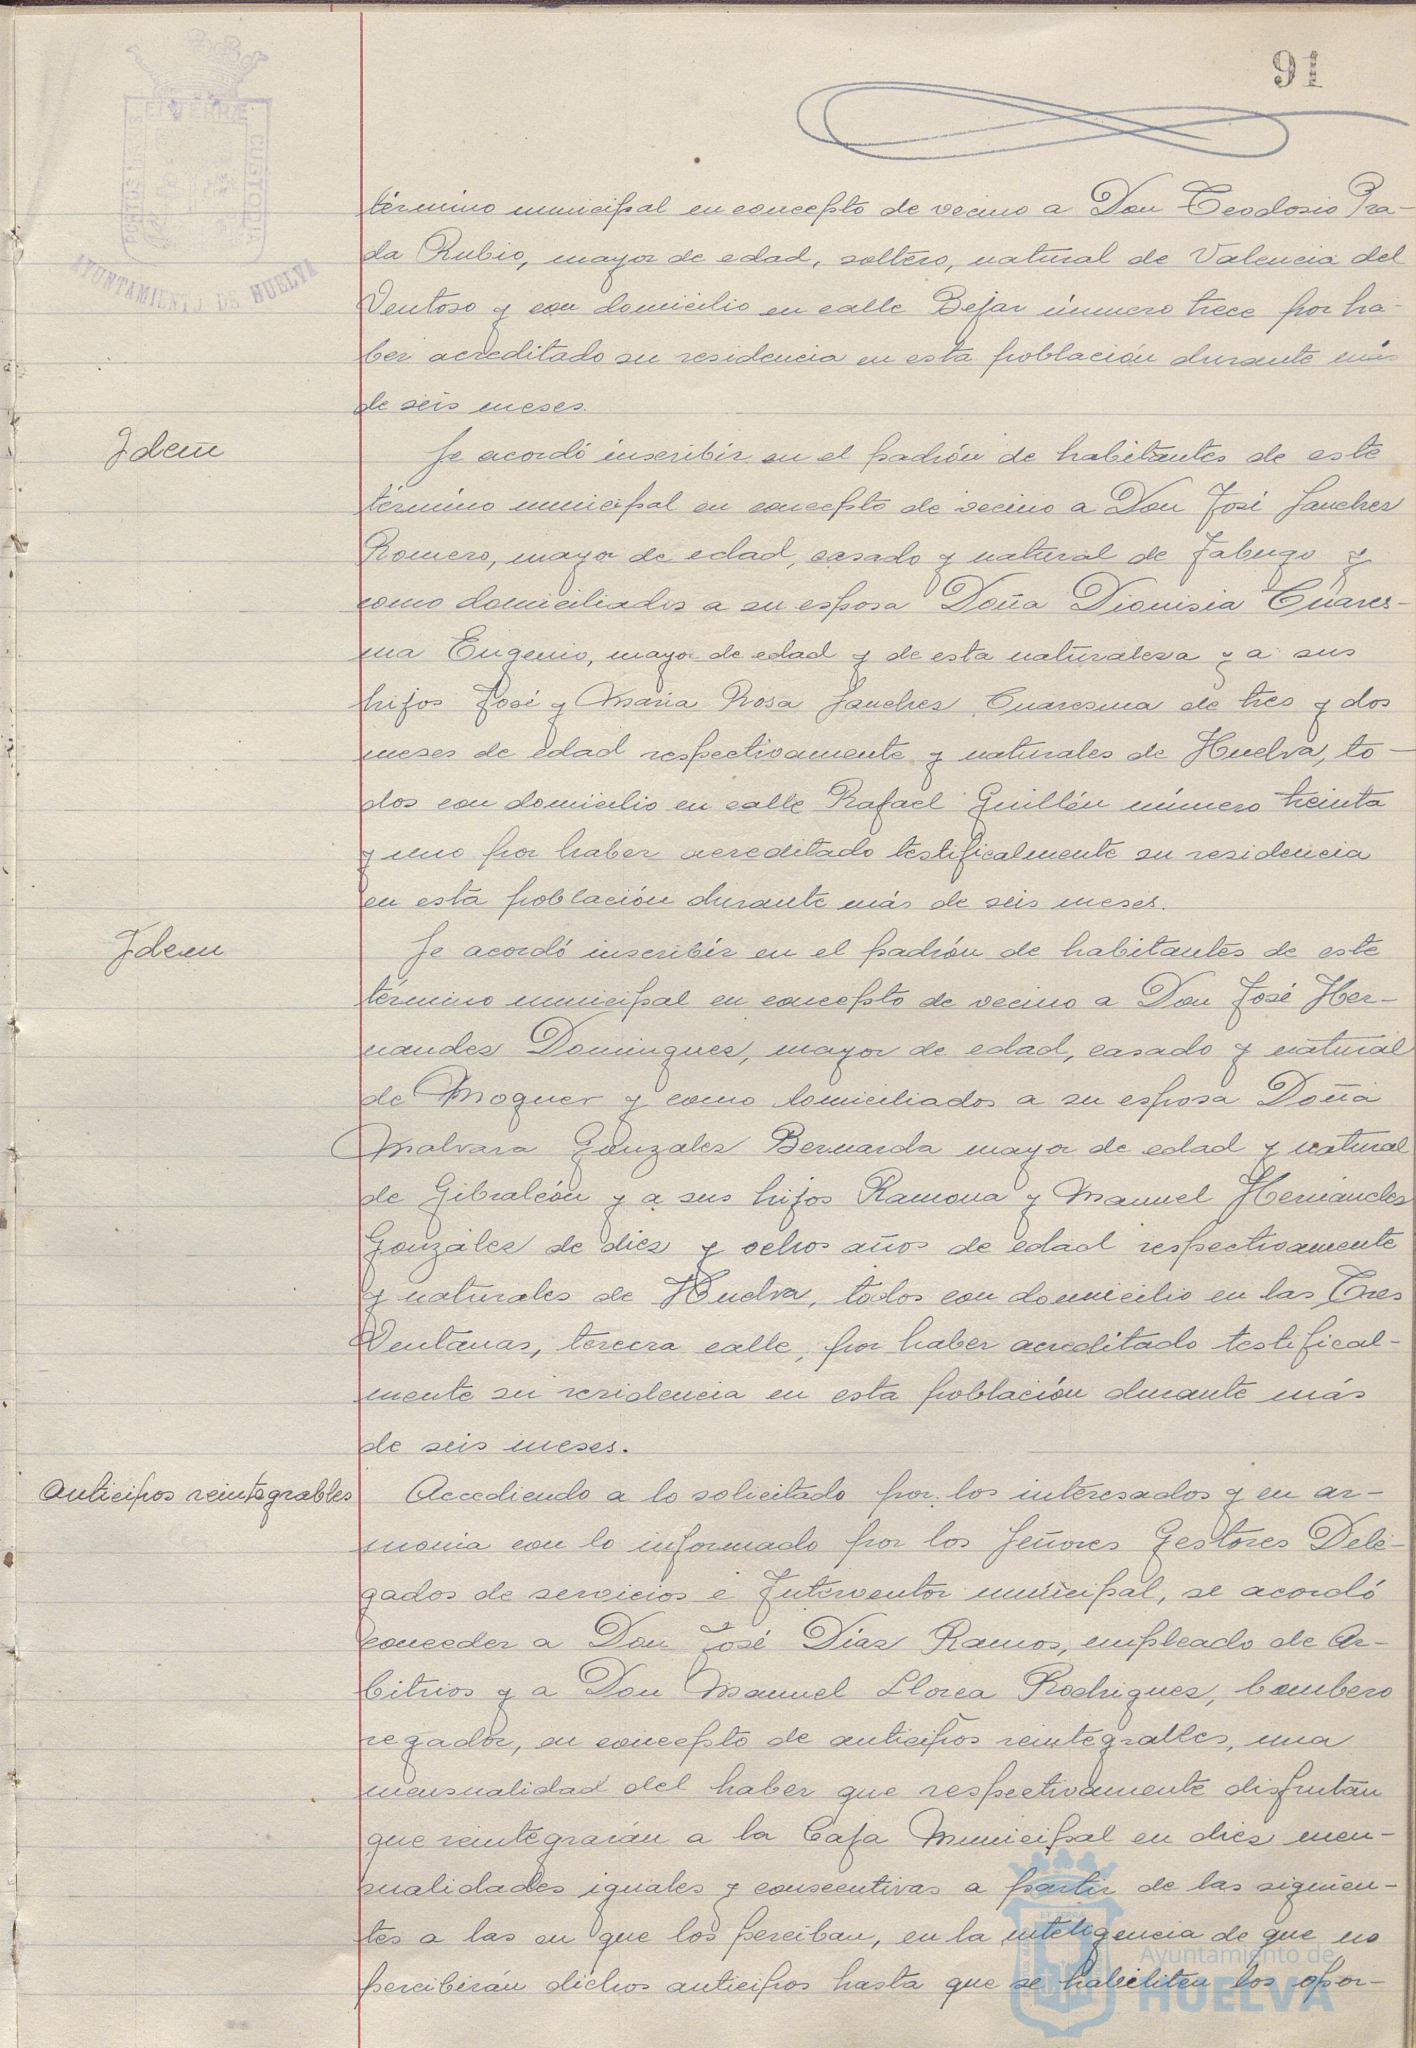 91
PORTUS MARIS
ET TERRÆ
CUSTODIA
AYUNTAMIENTO DE HUELVA
término municipal en concepto de vecino a Don Teodosio Pra-
da Rubio, mayor de edad, soltero, natural de Valencia del
Ventoso y con domicilio en calle Bejar número trece por ha-
ber acreditado su residencia en esta población durante más
de seis meses.
Idem
Se acordó inscribir en el padrón de habitantes de este
término municipal en concepto de vecino a Don José Sanchez
Romero, mayor de edad, casado y natural de Jabugo y
como domiciliados a su esposa Doña Dionisia Cuares-
ma Eugenio, mayor de edad y de esta naturaleza y a sus
hijos José y Maria Rosa Sanchez Cuaresma de tres y dos
meses de edad respectivamente y naturales de Huelva, to-
dos con domicilio en calle Rafael Guillén número treinta
y uno por haber acreditado testificalmente su residencia
en esta población durante más de seis meses.
Idem
Se acordó inscribir en el padrón de habitantes de este
término municipal en concepto de vecino a Don José Her-
nandez Dominguez, mayor de edad, casado y natural
de Moguer y como domiciliados a su esposa Doña
Malvara Gonzalez Bernarda mayor de edad y natural
de Gibraleón y a sus hijos Ramona y Manuel Hernández
González de diez y ochos años de edad respectivamente
y naturales de Huelva, todos con domicilio en las Tres
Ventanas, tercera calle, por haber acreditado testifical-
mente su residencia en esta población durante más
de seis meses.
Anticipos reintegrables
Accediendo a lo solicitado por los interesados y en ar-
monia con lo informado por los Señores Gestores Dele-
gados de servicios e Interventor municipal, se acordó
conceder a Don José Díaz Ramos, empleado de Ar-
bitrios y a Don Manuel Llorca Rodriguez, bombero
regador, en concepto de anticipos reintegrables, una
mensualidad del haber que respectivamente disfrutan
que reintegrarán a la Caja Municipal en diez men-
sualidades iguales y consecutivas a partir de las siguien-
tes a las en que los perciban, en la inteligencia de que no
percibirán dichos anticipos hasta que se habiliten los opor-
Ayuntamiento de
HUELVA